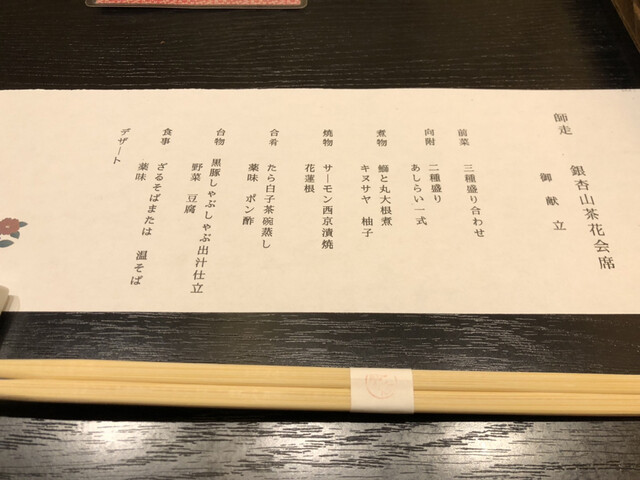 師走
銀杏山茶花会席
御献立
前菜 三種盛り合わせ
向附 二種盛り
あしらい一式
煮物 鰤と丸大根煮
キヌサヤ 柚子
焼物 サーモン西京漬焼
花蓮根
合肴 たら白子茶碗蒸し
薬味 ポン酢
台物 黒豚しゃぶしゃぶ出汁仕立
野菜 豆腐
食事 ざるそばまたは 温そば
薬味
デザート